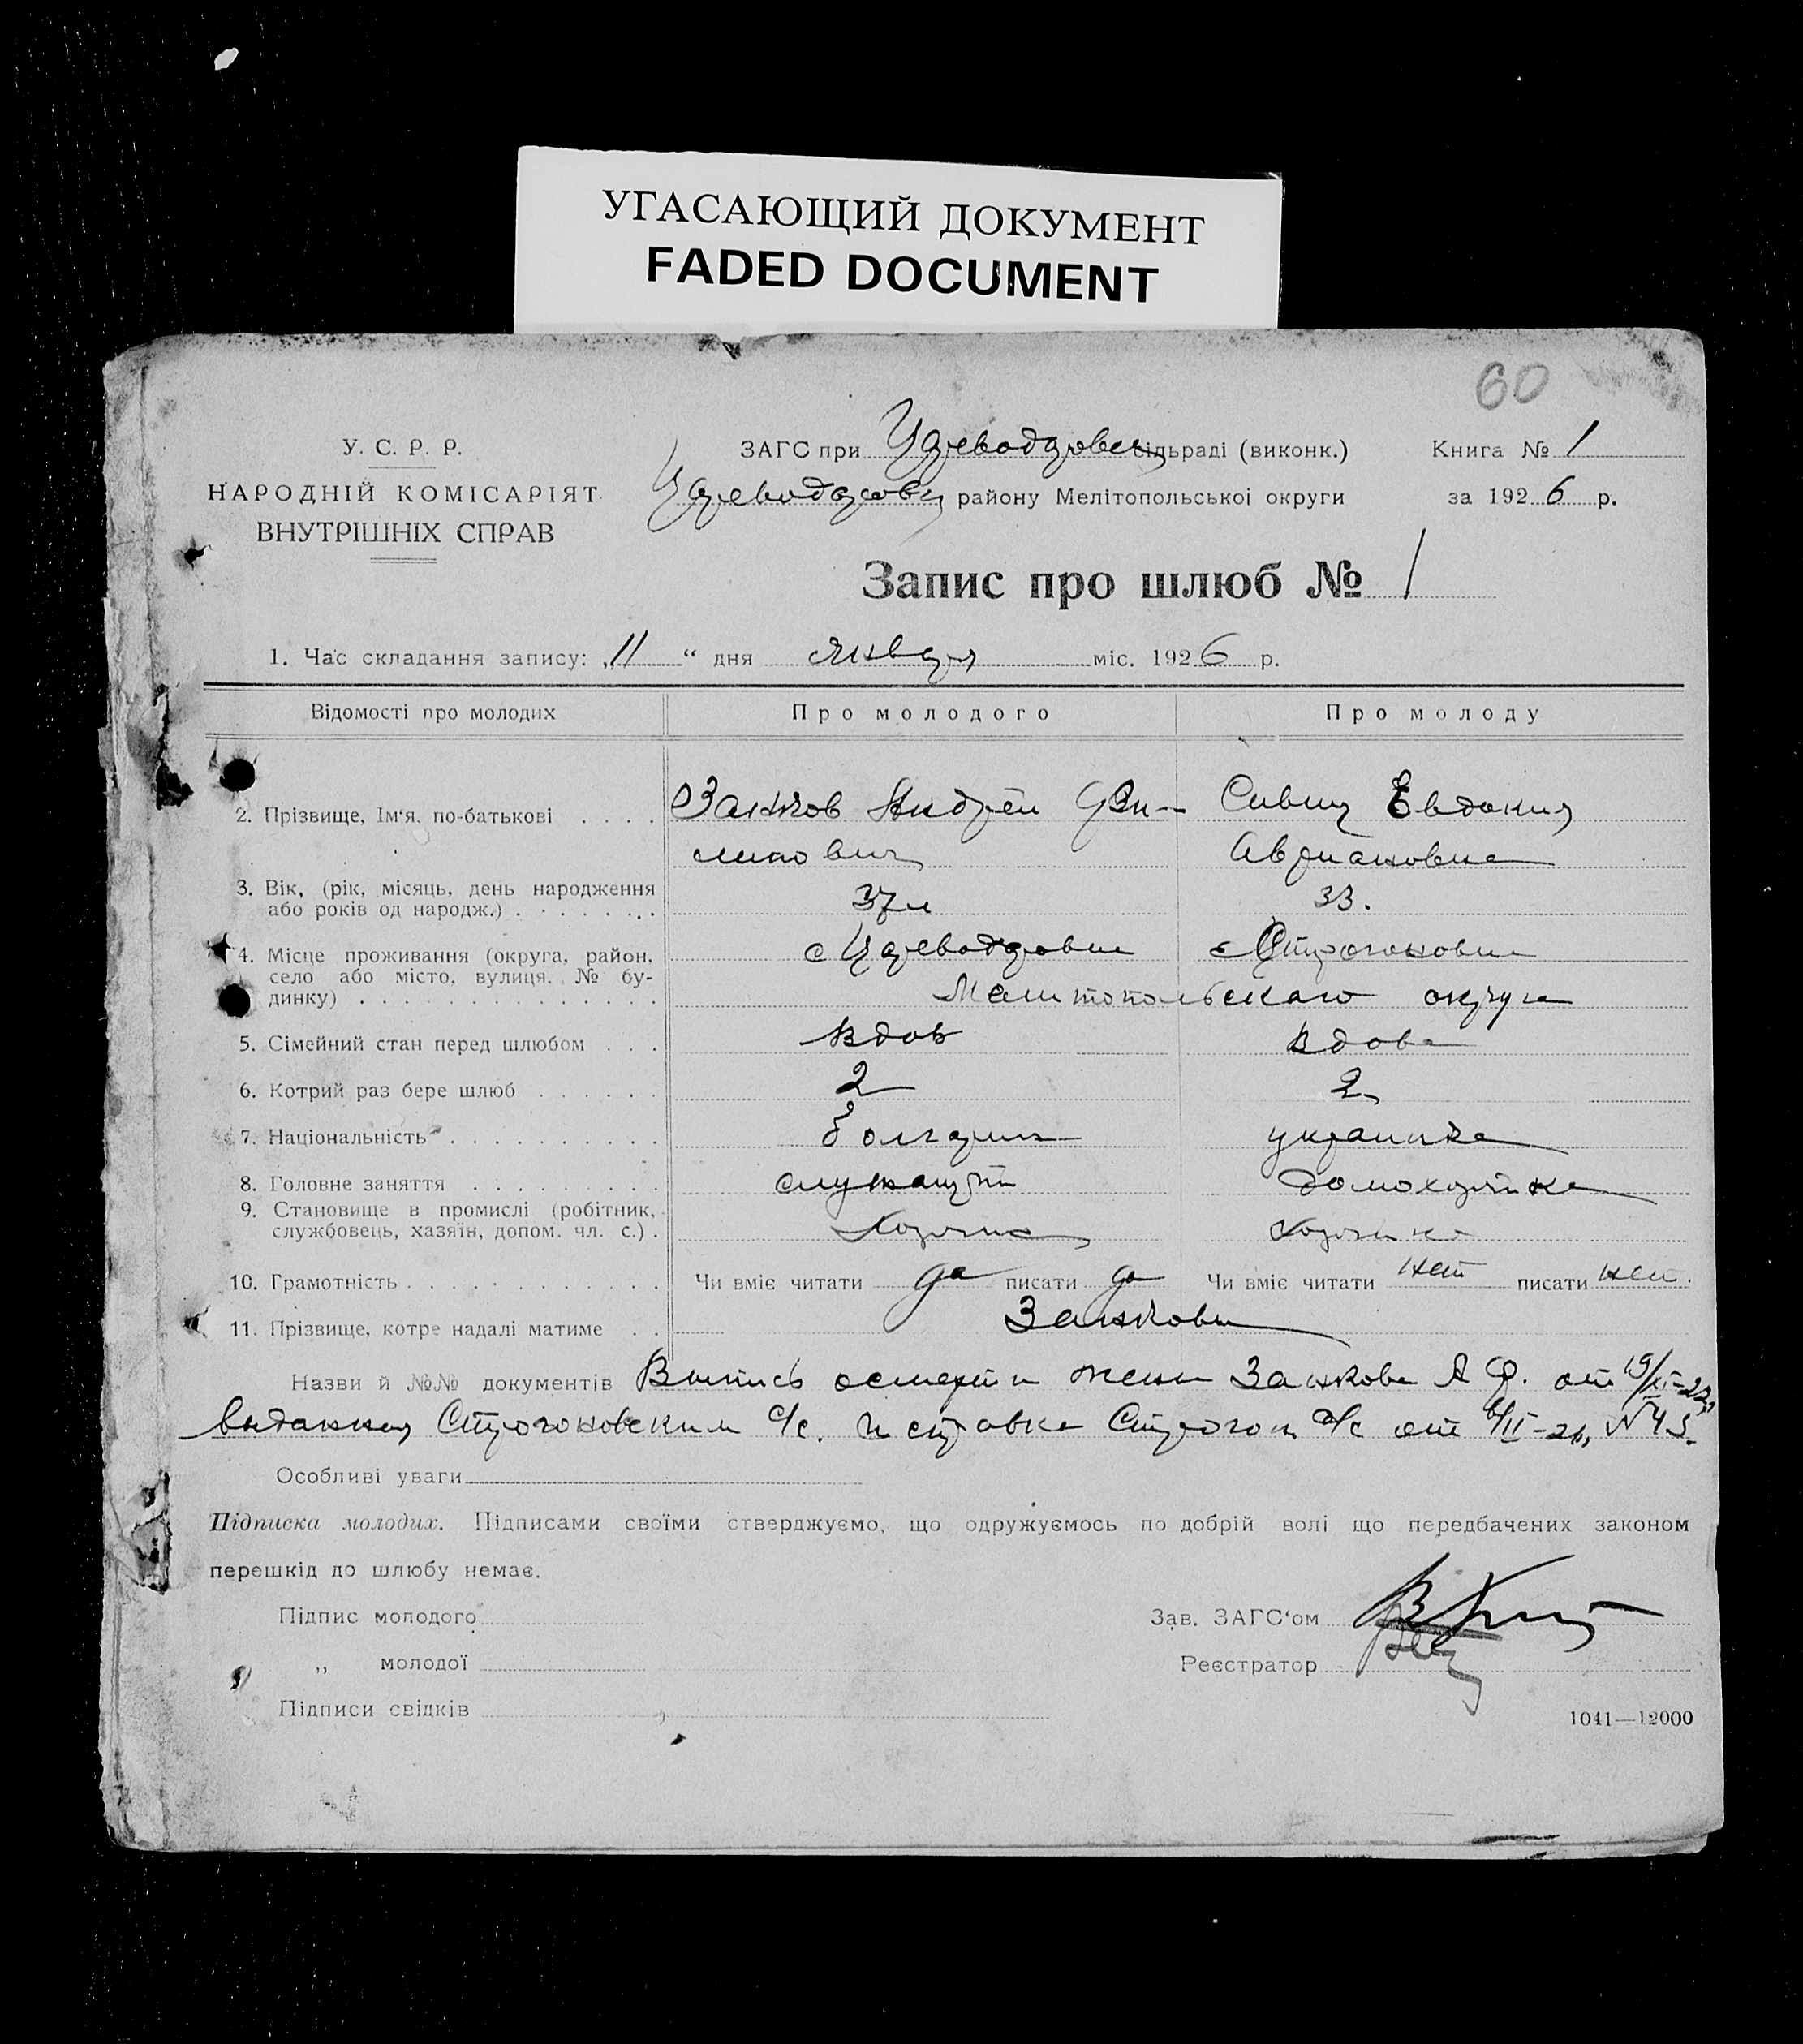 УГАСАЮЩИЙ ДОКУМЕНТ
FADED DOCUMENT
60
У. С. Р. Р.
НАРОДНІЙ КОМІСАРІЯТ
ВНУТРІШНІХ СПРАВ
ЗАГС при Цареводаровск сільраді (виконк.) Книга № 1
Цареводаровск району Мелітопольської округи за 1926 р.
Запис про шлюб № 1
1. Час складання запису: „11“ дня января міс. 1926 р.
Відомості про молодих Про молодого Про молоду
2. Прізвище, Ім‘я. по-батькові . . . . Занков Андрей Фи- Евдокия
липович Авриановна
3. Вік, (рік, місяць, день народження
або років од народж.) . . . . . . . 37 л 33.
4. Місце проживання (округа, район, с Цареводаровка с Строгоновка
село або місто, вулиця. № бу-
динку) . . . . . . . . . . . . . . Мелитопольскаго округа
5. Сімейний стан перед шлюбом . . . вдов вдова
6. Котрий раз бере шлюб . . . . . . 2 2
7. Національність . . . . . . . . . . болгарин украинка
8. Головне заняття . . . . . . . . . служащий домохозяйка
9. Становище в промислі (робітник,
службовець, хазяїн, допом. чл. с.) . Хозяин хозяйка
10. Грамотність . . . . . . . . . . . . Чи вміє читати да писати да Чи вміє читати нет писати нет.
11. Прізвище, котре надалі матиме . . Занковы
Назви й №№ документів Выпись о смерти жены Занкова А Ф. от 19/XI-22,
выданная Строгоновским с/с. и справка Строгон с/с от 6/II-26, № 43.
Особливі уваги
Підписка молодих. Підписами своїми стверджуємо, що одружуємось по добрій волі що передбачених законом
перешкід до шлюбу немає.
Підпис молодого Зав. ЗАГС‘ом
„ молодої Реєстратор
Підписи свідків
1041—12000